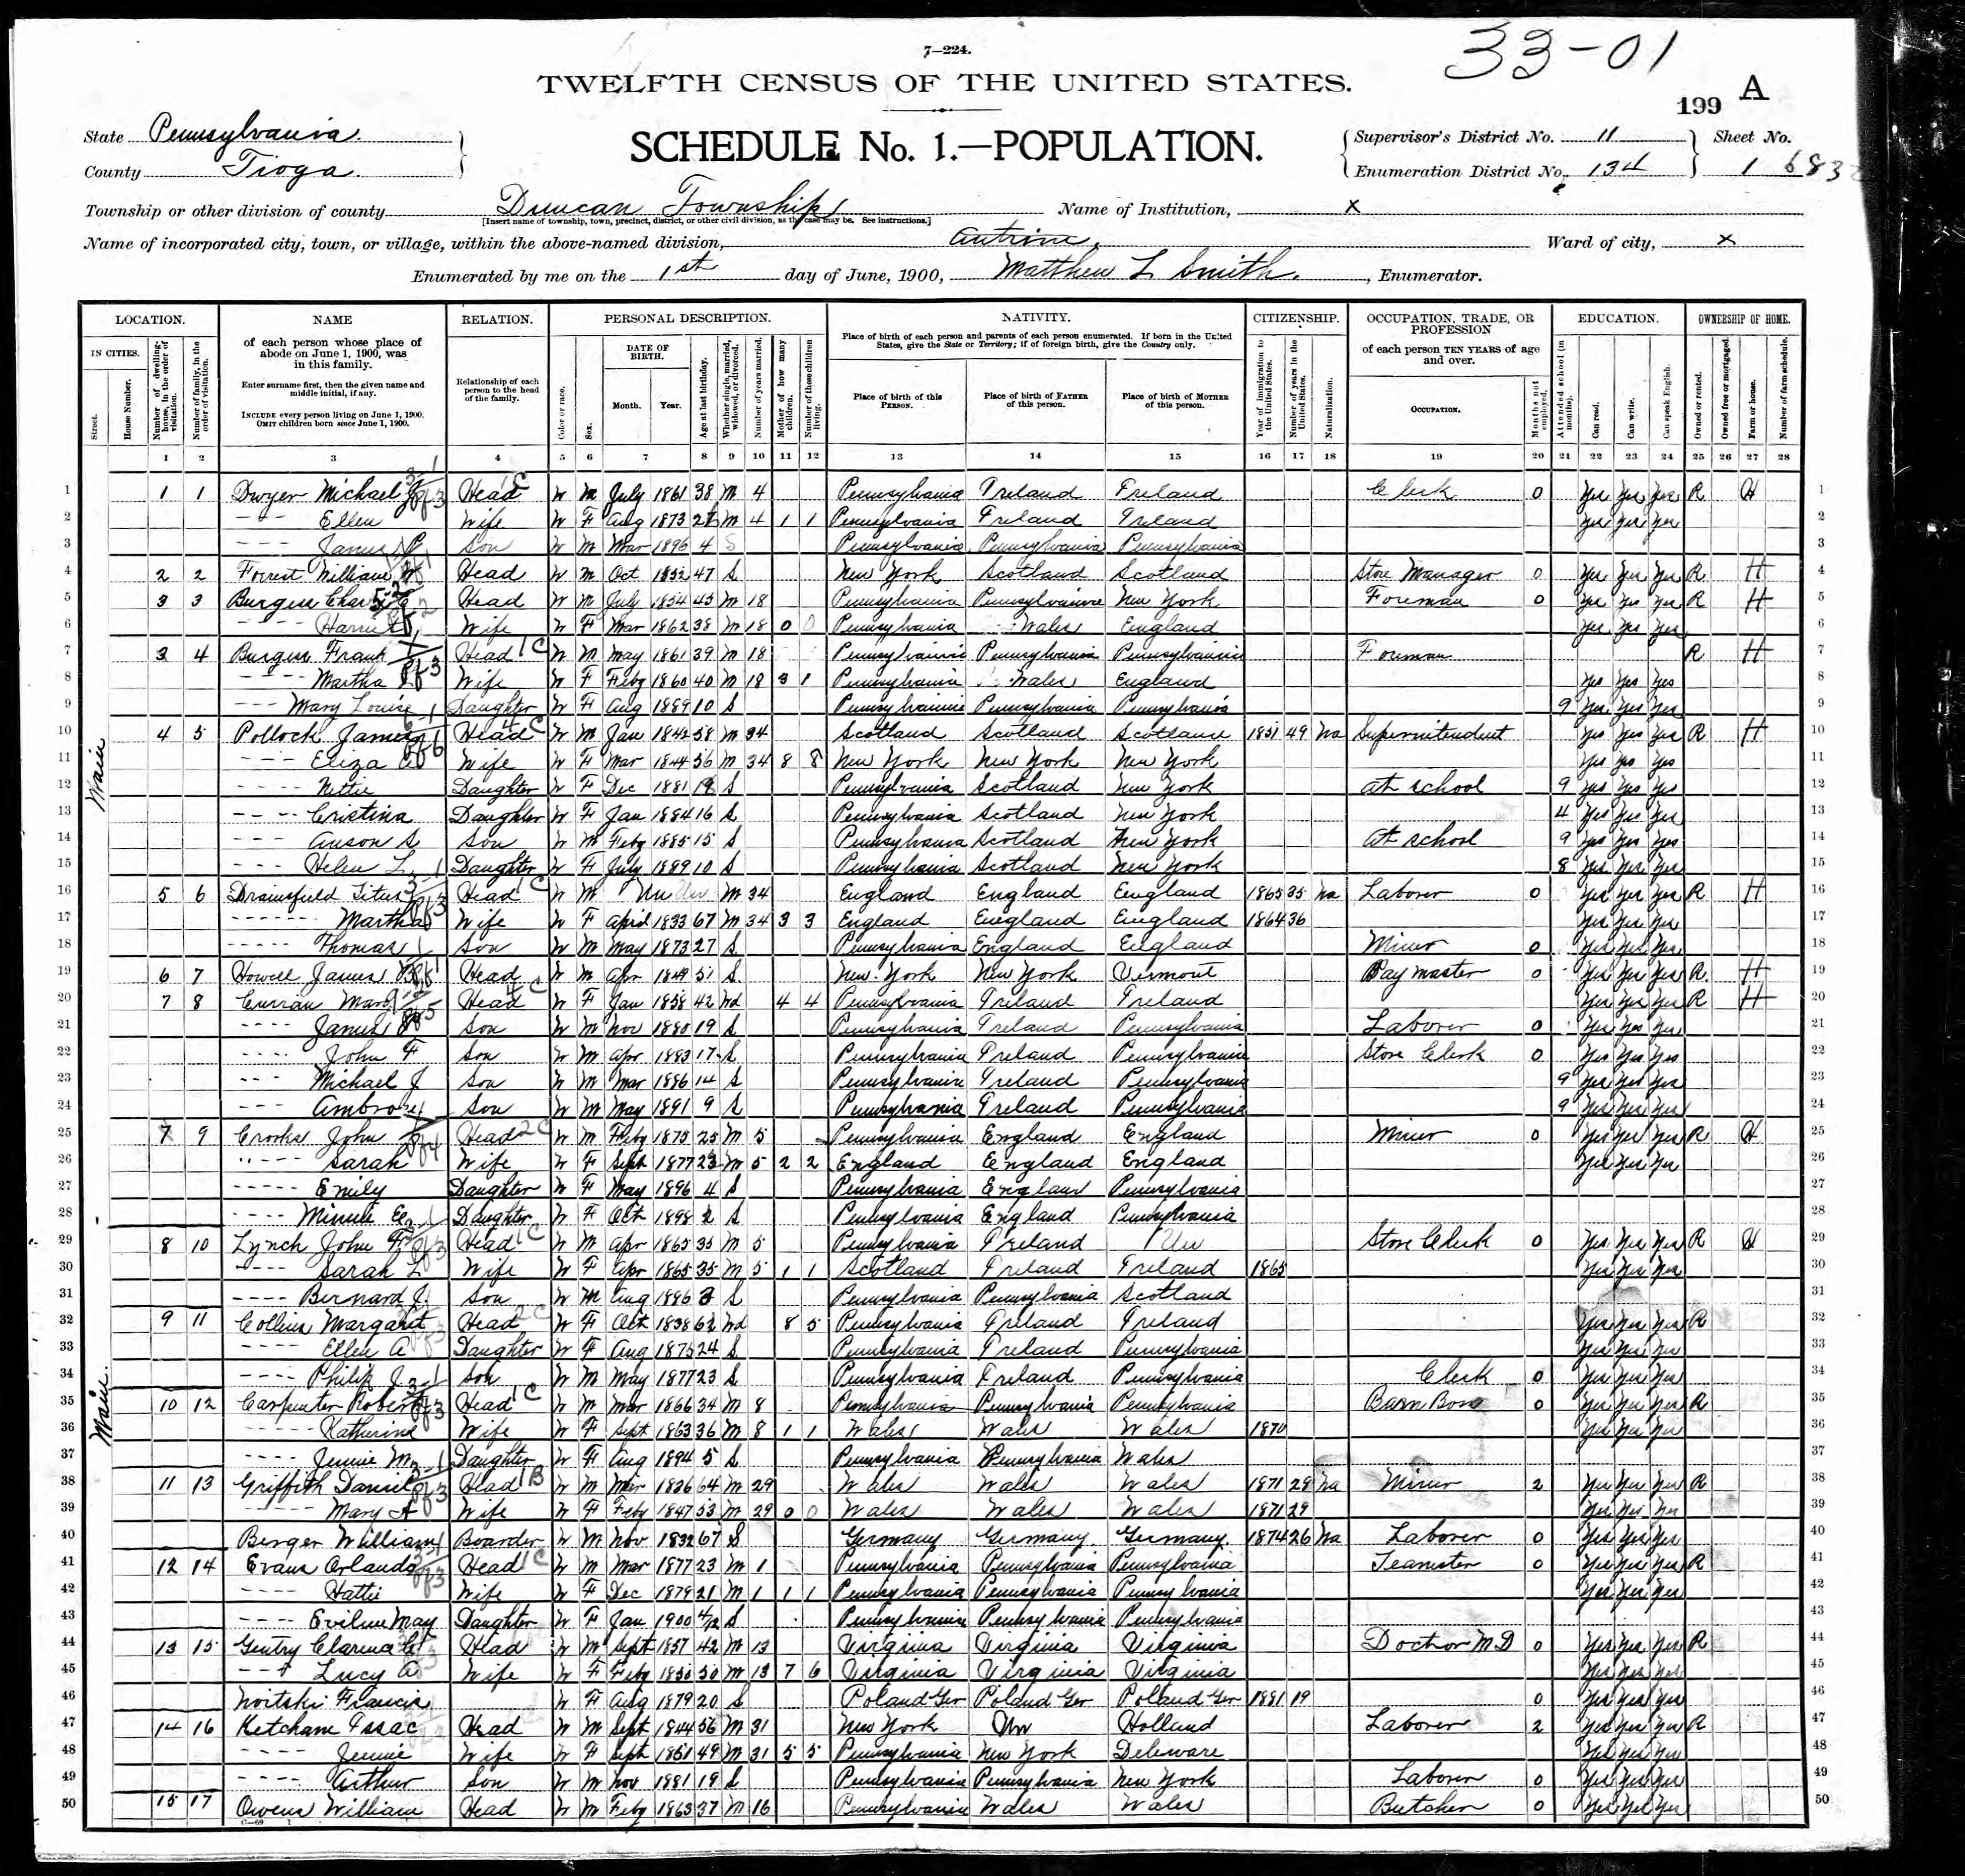 33-01
7—224.
TWELFTH CENSUS OF THE UNITED STATES.
199 A
State Pennsylvania.
County Tioga.
SCHEDULE No. 1.—POPULATION.
Supervisor's District No. 11
Enumeration District No. 134
Sheet No.
1
Township or other division of county Duncan Township
[Insert name of township, town, precinct, district, or other civil division, as the case may be. See instructions.]
Name of Institution, x
Name of incorporated city, town, or village, within the above-named division, Antrim,
Ward of city, x
Enumerated by me on the 1st day of June, 1900, Matthew L Smith, Enumerator.
LOCATION. NAME RELATION. PERSONAL DESCRIPTION. NATIVITY. CITIZENSHIP. OCCUPATION, TRADE, OR PROFESSION EDUCATION. OWNERSHIP OF HOME.
IN CITIES.
Street.
House Number.
Number of dwelling-house, in the order of visitation.
Number of family, in the order of visitation.
of each person whose place of abode on June 1, 1900, was in this family.
Enter surname first, then the given name and middle initial, if any.
INCLUDE every person living on June 1, 1900.
OMIT children born since June 1, 1900.
Relationship of each person to the head of the family.
Color or race.
Sex.
DATE OF BIRTH.
Month. Year.
Age at last birthday.
Whether single, married, widowed, or divorced.
Number of years married.
Mother of how many children.
Number of these children living.
Place of birth of each person and parents of each person enumerated. If born in the United States, give the State or Territory; if of foreign birth, give the Country only.
Place of birth of this PERSON.
Place of birth of FATHER of this person.
Place of birth of MOTHER of this person.
Year of immigration to the United States.
Number of years in the United States.
Naturalization.
of each person TEN YEARS of age and over.
OCCUPATION.
Months not employed.
Attended school (in months).
Can read.
Can write.
Can speak English.
Owned or rented.
Owned free or mortgaged.
Farm or house.
Number of farm schedule.
1 2 3 4 5 6 7 8 9 10 11 12 13 14 15 16 17 18 19 20 21 22 23 24 25 26 27 28
Main
1 1 1 Dwyer Michael Head W M July 1861 38 M 4 Pennsylvania Ireland Ireland Clerk 0 Yes Yes Yes R H 1
2 Ellen Wife W F Aug 1873 M 4 1 1 Pennsylvania Ireland Ireland Yes Yes Yes 2
3 James P Son W M Mar 1896 4 S Pennsylvania Pennsylvania Pennsylvania 3
4 2 2 Forrest William W Head W M Oct 1852 47 S New York Scotland Scotland Store Manager 0 Yes Yes Yes R H 4
5 3 3 Burgess Head W M July 1854 45 M 18 Pennsylvania Pennsylvania New York Foreman 0 Yes Yes Yes R H 5
6 Harriet Wife W F Mar 1862 38 M 18 0 0 Pennsylvania Wales England Yes Yes Yes 6
7 3 4 Burgess Frank Head W M May 1861 39 M 18 Pennsylvania Pennsylvania Pennsylvania Foreman R H 7
8 Martha Wife W F Feby 1860 40 M 18 3 1 Pennsylvania Wales England Yes Yes Yes 8
9 Mary Louise Daughter W F Aug 1889 10 S Pennsylvania Pennsylvania Pennsylvania 9 Yes Yes Yes 9
10 4 5 Pollock James Head W M Jan 1842 58 M 34 Scotland Scotland Scotland 1851 49 Na Superintendent Yes Yes Yes R H 10
11 Eliza Wife W F Mar 1844 56 M 34 8 8 New York New York New York Yes Yes Yes 11
12 Nettie Daughter W F Dec 1881 S Pennsylvania Scotland New York At school 9 Yes Yes Yes 12
13 Cristina Daughter W F Jan 1884 16 S Pennsylvania Scotland New York 4 Yes Yes Yes 13
14 Anson S Son W M Feby 1885 15 S Pennsylvania Scotland New York At school 9 Yes Yes Yes 14
15 Helen L Daughter W F July 1889 10 S Pennsylvania Scotland New York 8 Yes Yes Yes 15
16 5 6 Drainsfield Titus Head W M Un Un M 34 England England England 1865 35 Na Laborer 0 Yes Yes Yes R H 16
17 Martha Wife W F April 1833 67 M 34 3 3 England England England 1864 36 Yes Yes Yes 17
18 Thomas Son W M May 1873 27 S Pennsylvania England England Miner 0 Yes Yes Yes 18
19 6 7 Howell James Head W M Apr 1849 51 S New York New York Vermont Pay master 0 Yes Yes Yes R H 19
20 7 8 Curran Mary Head W F Jan 1858 42 Wd 4 4 Pennsylvania Ireland Ireland Yes Yes Yes R H 20
21 James Son W M Nov 1880 19 S Pennsylvania Ireland Pennsylvania Laborer 0 Yes Yes Yes 21
22 John F Son W M Apr 1883 17 S Pennsylvania Ireland Pennsylvania Store Clerk 0 Yes Yes Yes 22
23 Michael J Son W M Mar 1886 14 S Pennsylvania Ireland Pennsylvania 9 Yes Yes Yes 23
24 Ambrose Son W M May 1891 9 S Pennsylvania Ireland Pennsylvania 9 Yes Yes Yes 24
25 7 9 Crooks John Head W M Feby 1875 25 M 5 Pennsylvania England England Miner 0 Yes Yes Yes R H 25
26 Sarah Wife W F Sept 1877 M 5 2 2 England England England Yes Yes Yes 26
27 Emily Daughter W F May 1896 4 S Pennsylvania England Pennsylvania 27
28 Minnie E Daughter W F Oct 1898 S Pennsylvania England Pennsylvania 28
29 8 10 Lynch John F Head W M Apr 1865 35 M 5 Pennsylvania Ireland Un Store Clerk 0 Yes Yes Yes R H 29
30 Sarah L Wife W F Apr 1865 35 M 5 1 1 Scotland Ireland Ireland 1865 Yes Yes Yes 30
31 Bernard J. Son W M Aug 1896 3 S Pennsylvania Pennsylvania Scotland 31
32 9 11 Collins Margaret Head W F Oct 1838 Wd 8 5 Pennsylvania Ireland Ireland Yes Yes Yes R 32
33 Ellen A Daughter W F Aug 1875 24 S Pennsylvania Ireland Pennsylvania Yes Yes Yes 33
Main
34 Philip J Son W M May 1877 23 S Pennsylvania Ireland Pennsylvania Clerk 0 Yes Yes Yes 34
35 10 12 Carpenter Robert Head W M Mar 1866 34 M 8 Pennsylvania Pennsylvania Pennsylvania Barn Boss 0 Yes Yes Yes R 35
36 Katherine Wife W F Sept 1863 36 M 8 1 1 Wales Wales Wales 1870 Yes Yes Yes 36
37 Jennie M Daughter W F Aug 1894 5 S Pennsylvania Pennsylvania Wales 37
38 11 13 Griffith Daniel Head W M Mar 1836 64 M 29 Wales Wales Wales 1871 29 Na Miner 2 Yes Yes Yes R 38
39 Mary A Wife W F Feby 1847 53 M 29 0 0 Wales Wales Wales 1871 29 Yes Yes Yes 39
40 Berger William Boarder W M Nov 1832 67 S Germany Germany Germany 1874 26 Na Laborer 0 Yes Yes Yes 40
41 12 14 Evans Orlando Head W M Mar 1877 23 M 1 Pennsylvania Pennsylvania Pennsylvania Teamster 0 Yes Yes Yes R 41
42 Hattie Wife W F Dec 1879 21 M 1 1 1 Pennsylvania Pennsylvania Pennsylvania Yes Yes Yes 42
43 Eviline May Daughter W F Jan 1900 4/12 S Pennsylvania Pennsylvania Pennsylvania 43
44 13 15 Gentry Clarence Head W M Sept 1857 42 M 13 Virginia Virginia Virginia Doctror M.D 0 Yes Yes Yes R 44
45 Lucy A Wife W F Feby 1850 50 M 13 7 6 Virginia Virginia Virginia Yes Yes Yes 45
46 Noitski Francis W F Aug 1879 20 S Poland Ger Poland Ger Poland Ger 1881 19 0 Yes Yes Yes 46
47 14 16 Ketcham Issac Head W M Sept 1844 56 M 31 New York Un Holland Laborer 2 Yes Yes Yes R 47
48 Jennie Wife W F Sept 1851 49 M 31 5 5 Pennsylvania New York Deleware Yes Yes Yes 48
49 Arthur Son W M Nov 1881 19 S Pennsylvania Pennsylvania New York Laborer 0 Yes Yes Yes 49
50 15 17 Owens William Head W M Feby 1863 37 M 16 Pennsylvania Wales Wales Butcher 0 Yes Yes Yes 50